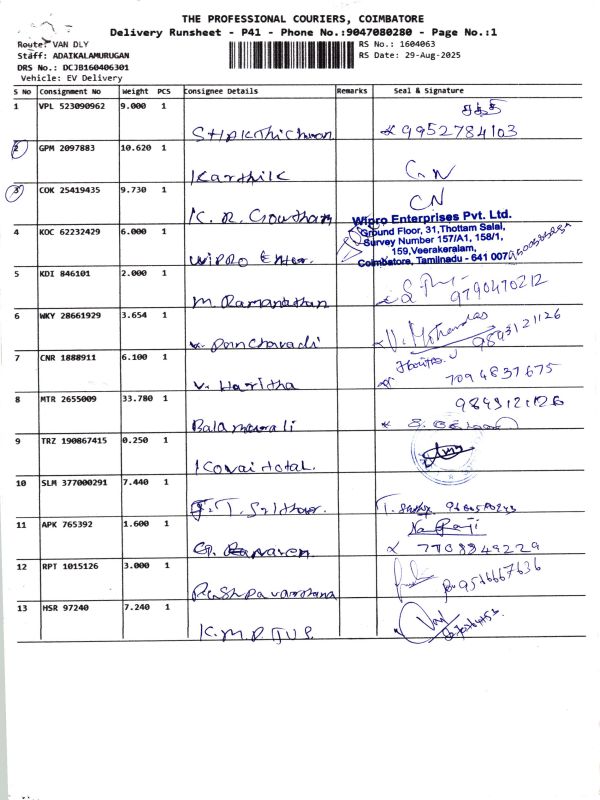 THE PROFESSIONAL COURIERS, COIMBATORE
Delivery Runsheet - P41 - Phone No.:9047080280 - Page No.:1
Route: VAN DLY
Staff: ADAIKALAMURUGAN
DRS No.: DCJB160406301
Vehicle: EV Delivery
RS No.: 1604063
RS Date: 29-Aug-2025
S No Consignment No Weight PCS Consignee Details Remarks Seal & Signature
1 VPL 523090962 9.000 1
சக்தி
9952784103
2 GPM 2097883 10.620 1
Karthik
G.N
3 COK 25419435 9.730 1
CN
K. R. Gowtham
4 KOC 62232429 6.000 1
Wipro Enter.
Wipro Enterprises Pvt. Ltd.
Ground Floor, 31, Thottam Salai,
Survey Number 157/A1, 158/1,
159, Veerakeralam,
Coimbatore, Tamilnadu - 641 007
5 KDI 846101 2.000 1
M. Ramanathan
9790470212
6 WKY 28661929 3.654 1
V. Mohandas
9843121126
7 CNR 1888911 6.100 1
V. Haritha
7094837675
8 MTR 2655009 33.780 1
Balamurali
9 TRZ 190867415 0.250 1
Kovai total.
10 SLM 377000291 7.440 1
11 APK 765392 1.600 1
Na Raji
7708949229
12 RPT 1015126 3.000 1
9566667636
13 HSR 97240 7.240 1